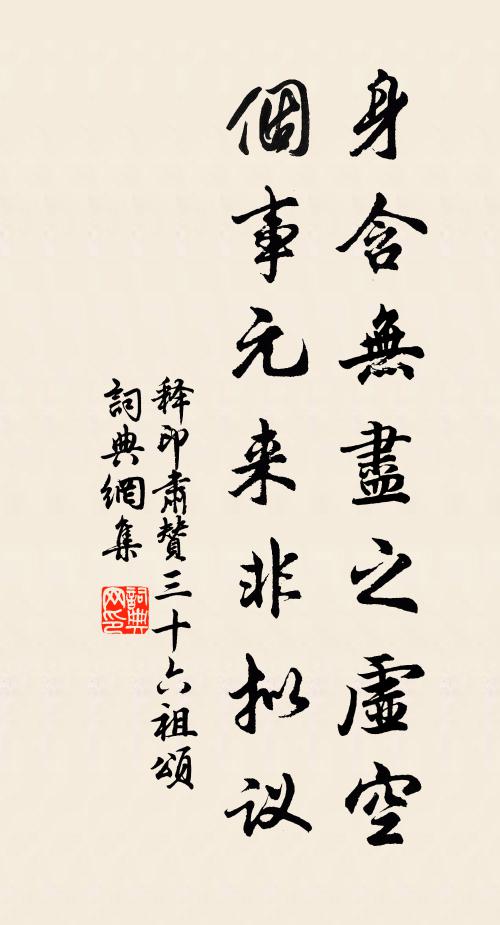 身含無盡之虛空
個事元来非拟议
释印肅贊三十六祖頌
詞典網集
詞典网印